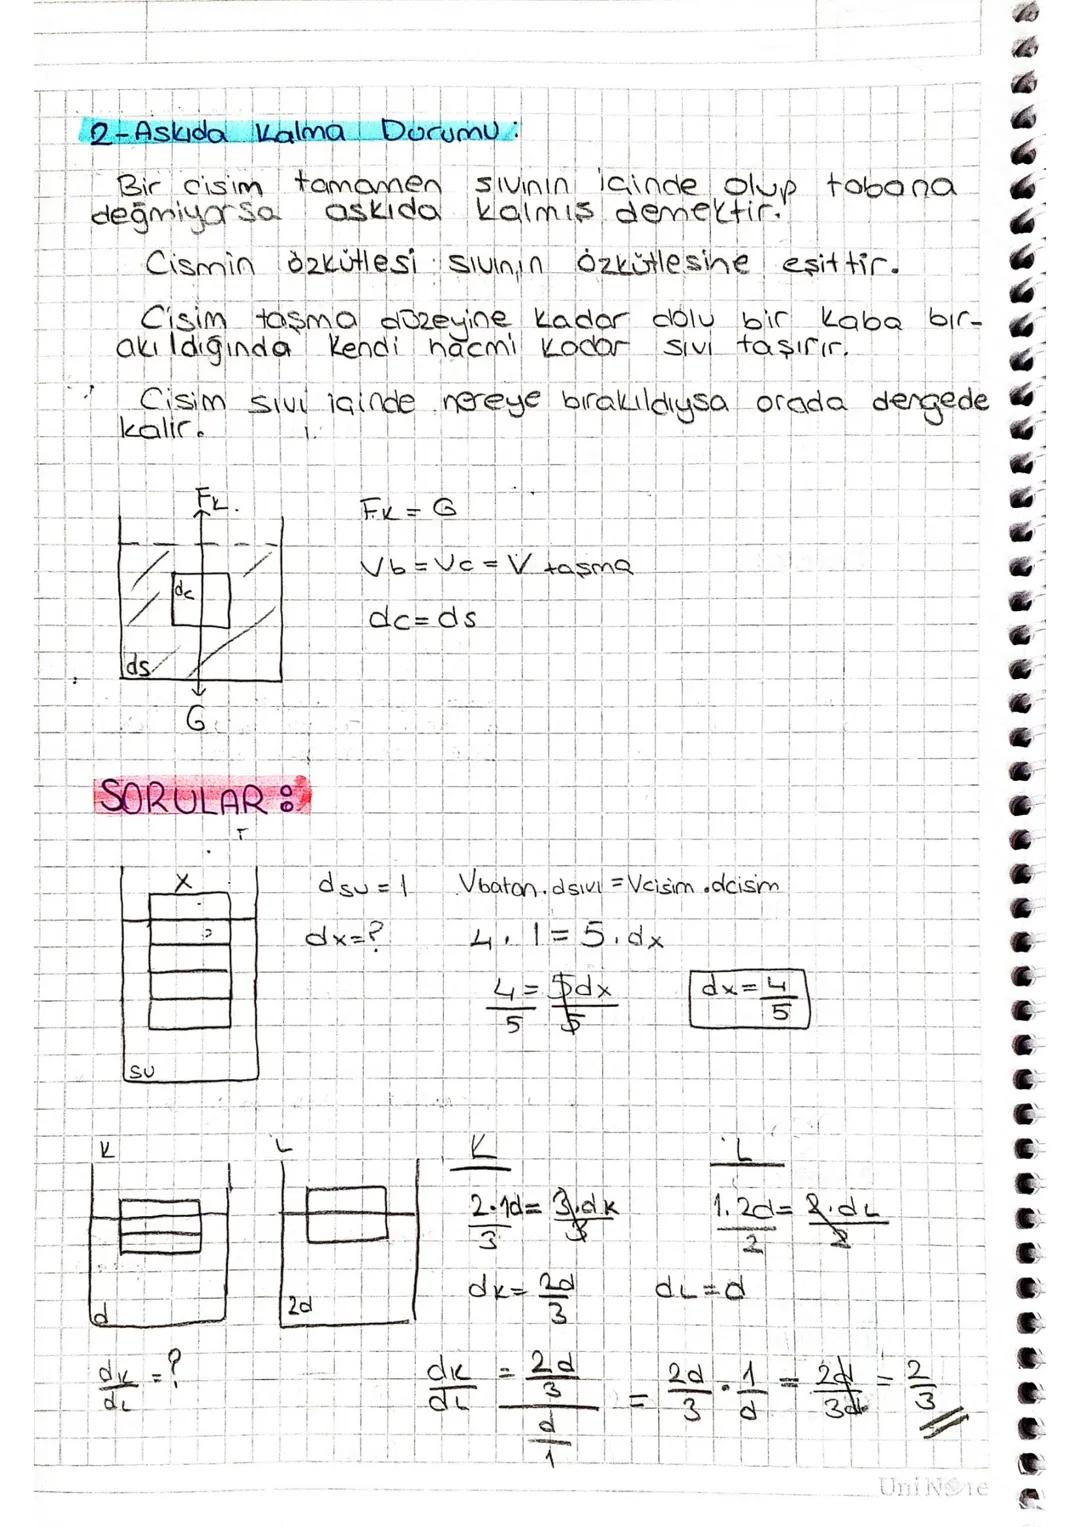 2-Askıda Kalma Durumu:
Bir cisim tamamen sıvının içinde olup tabana
değmiyorsa askıda kalmış demektir.
Cismin özkütlesi sıvının özkütlesine eşittir.
Cisim taşma düzeyine kadar dolu bir kaba bır-
akıldığında kendi hacmi kadar sıvı taşırır.
Cisim sıvı içinde nereye bırakıldıysa orada dengede
kalır.
Fk
Fk = G
Vb = Vc = V taşma
dc
dc = ds
ds
G
SORULAR:
X
dsu = 1 Vbatan.dsıvı = Vcisim.dcisim
dx=? 4.1 = 5.dx
4/5 = 5dx/5 dx = 4/5
su
K L K L
2.1d/3 = 3.dk/3 1.2d/2 = 2.dL/2
d 2d dk = 2d/3 dL = d
dk/dL = ? dk/dL = 2d/3 / d/1 = 2d/3 . 1/d = 2d/3d = 2/3
UniNote